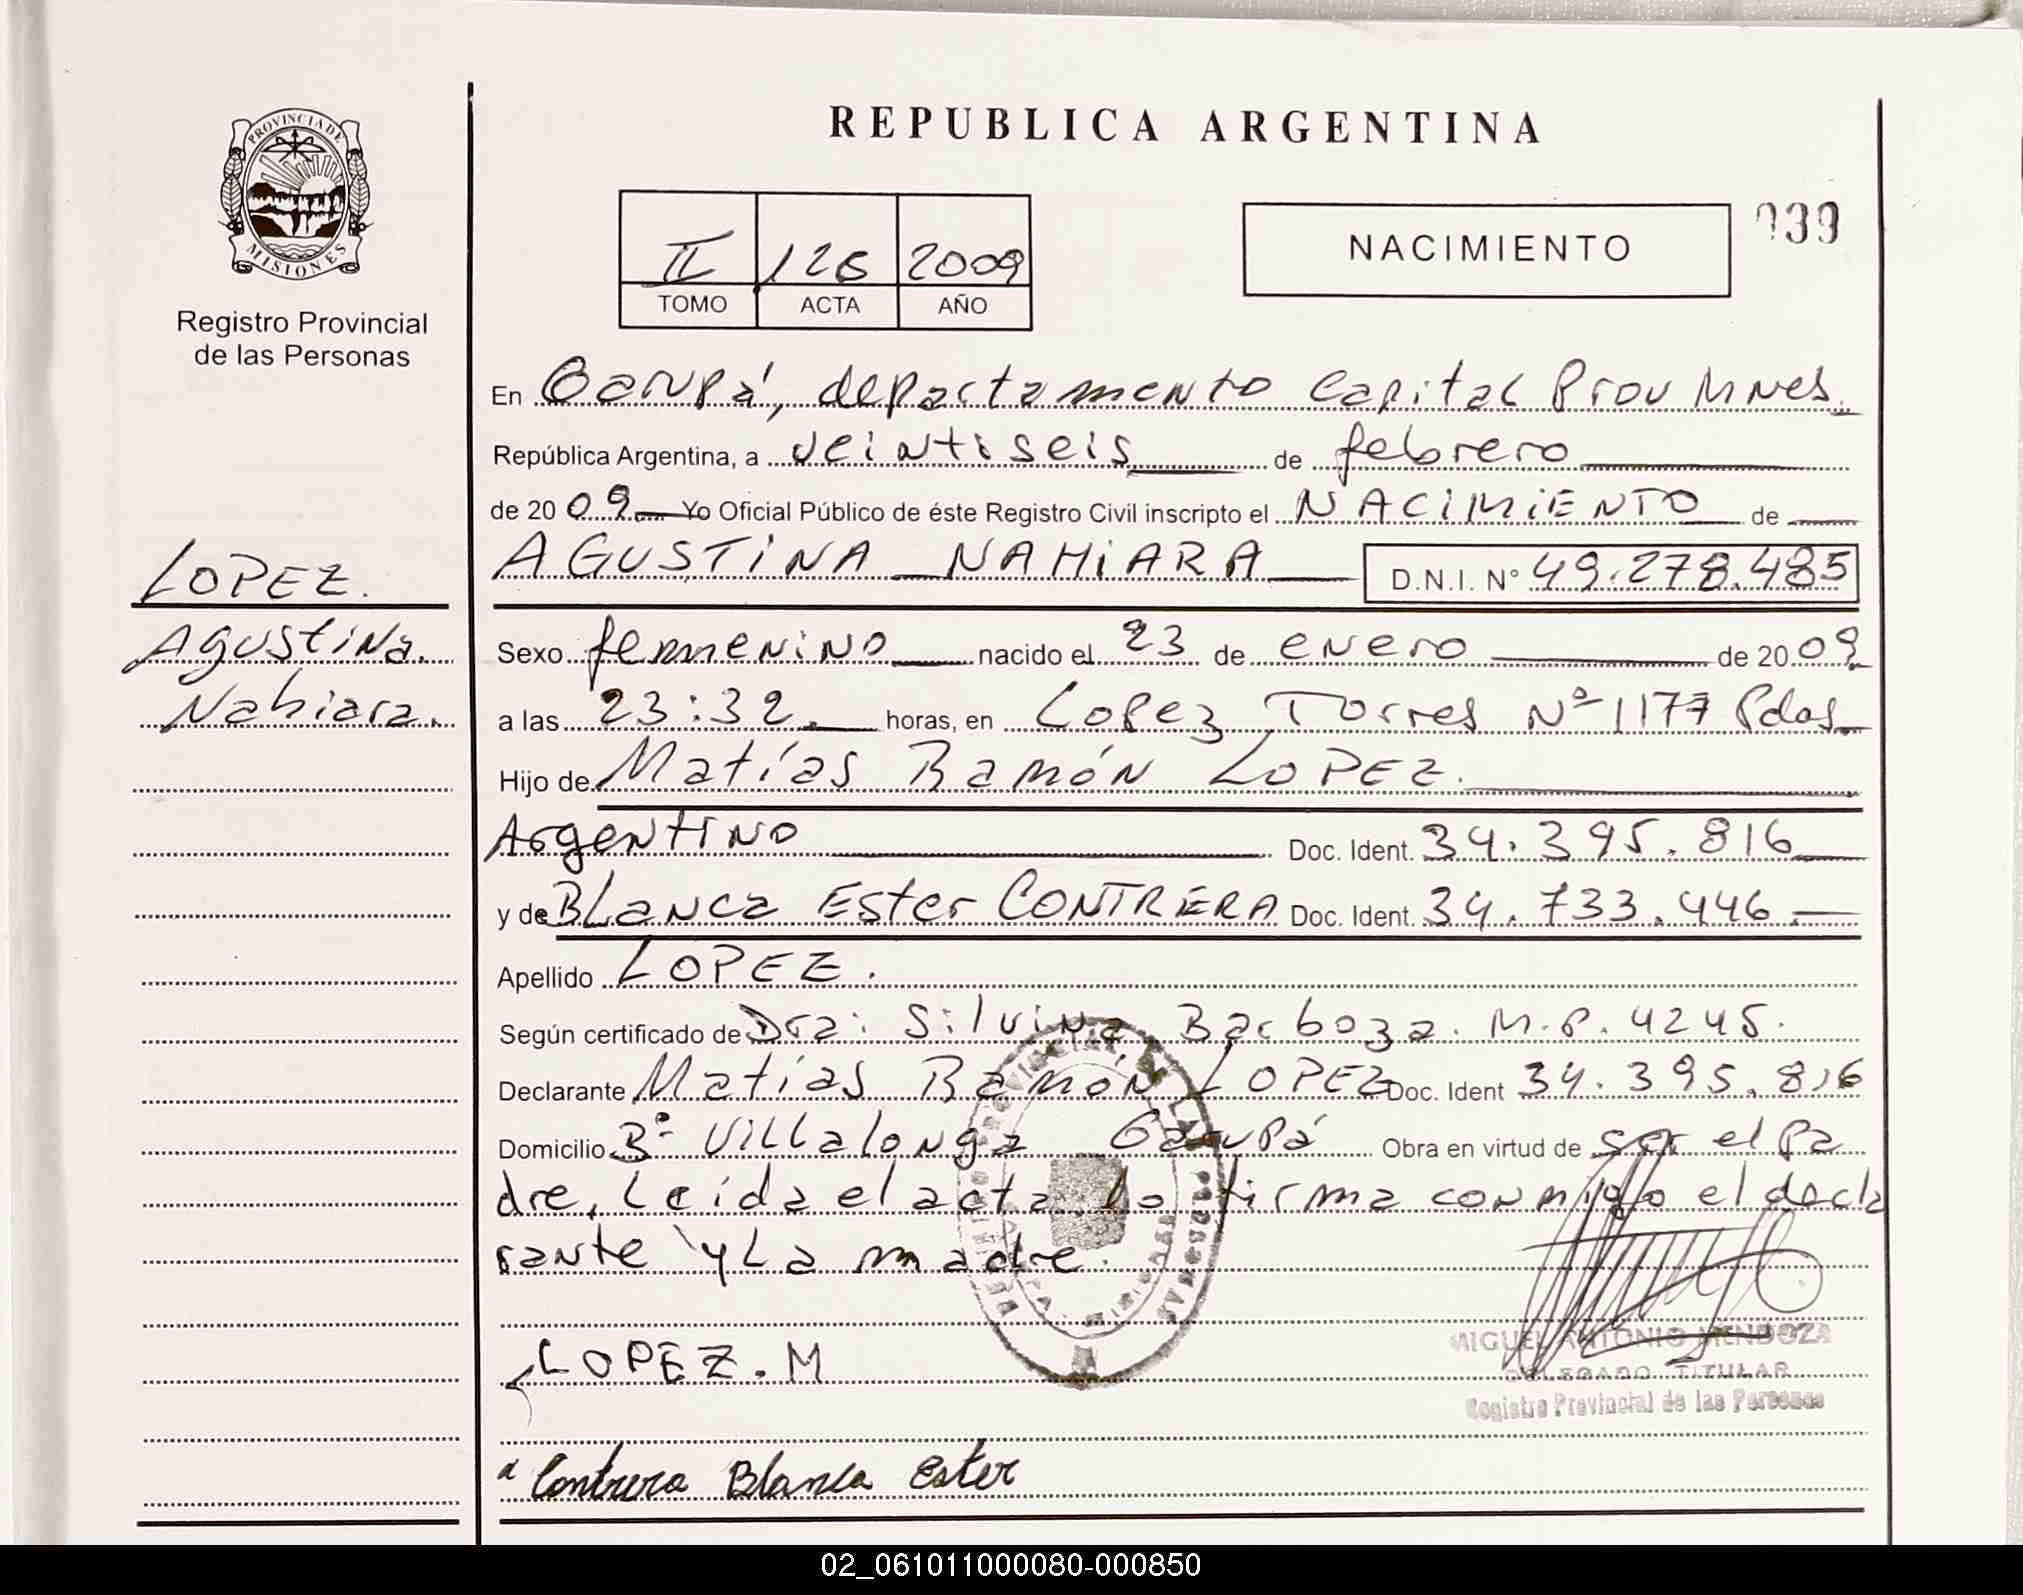 REPUBLICA ARGENTINA
PROVINCIA DE
MISIONES
Registro Provincial
de las Personas
II 126 2009
TOMO ACTA AÑO
NACIMIENTO
039
En Garupá, departamento Capital Prov Mnes.
República Argentina, a veintiseis de febrero
de 2009 Yo Oficial Público de éste Registro Civil inscripto el NACIMIENTO de
AGUSTINA NAHIARA D.N.I. N° 49.278.485
LOPEZ.
Agustina.
Nahiara.
Sexo femenino nacido el 23 de enero de 2009
a las 23:32. horas, en Lopez Torres Nº 1177 Pdas.
Hijo de Matías Ramón LOPEZ.
Argentino Doc. Ident. 34.395.816
y de Blanca Ester CONTRERA Doc. Ident. 34.733.446.
Apellido LOPEZ.
Según certificado de Dra: Silvina Barboza. M.P. 4245.
Declarante Matías Ramón LOPEZ Doc. Ident 34.395.816
Domicilio Bº Villalonga Garupá Obra en virtud de ser el pa
dre, Leída el acta lo firma conmigo el decla
rante y La madre.
LOPEZ. M
MIGUEL ANTONIO MENDOZA
DELEGADO TITULAR
Registro Provincial de las Personas
Contrera Blanca Ester
02_061011000080-000850